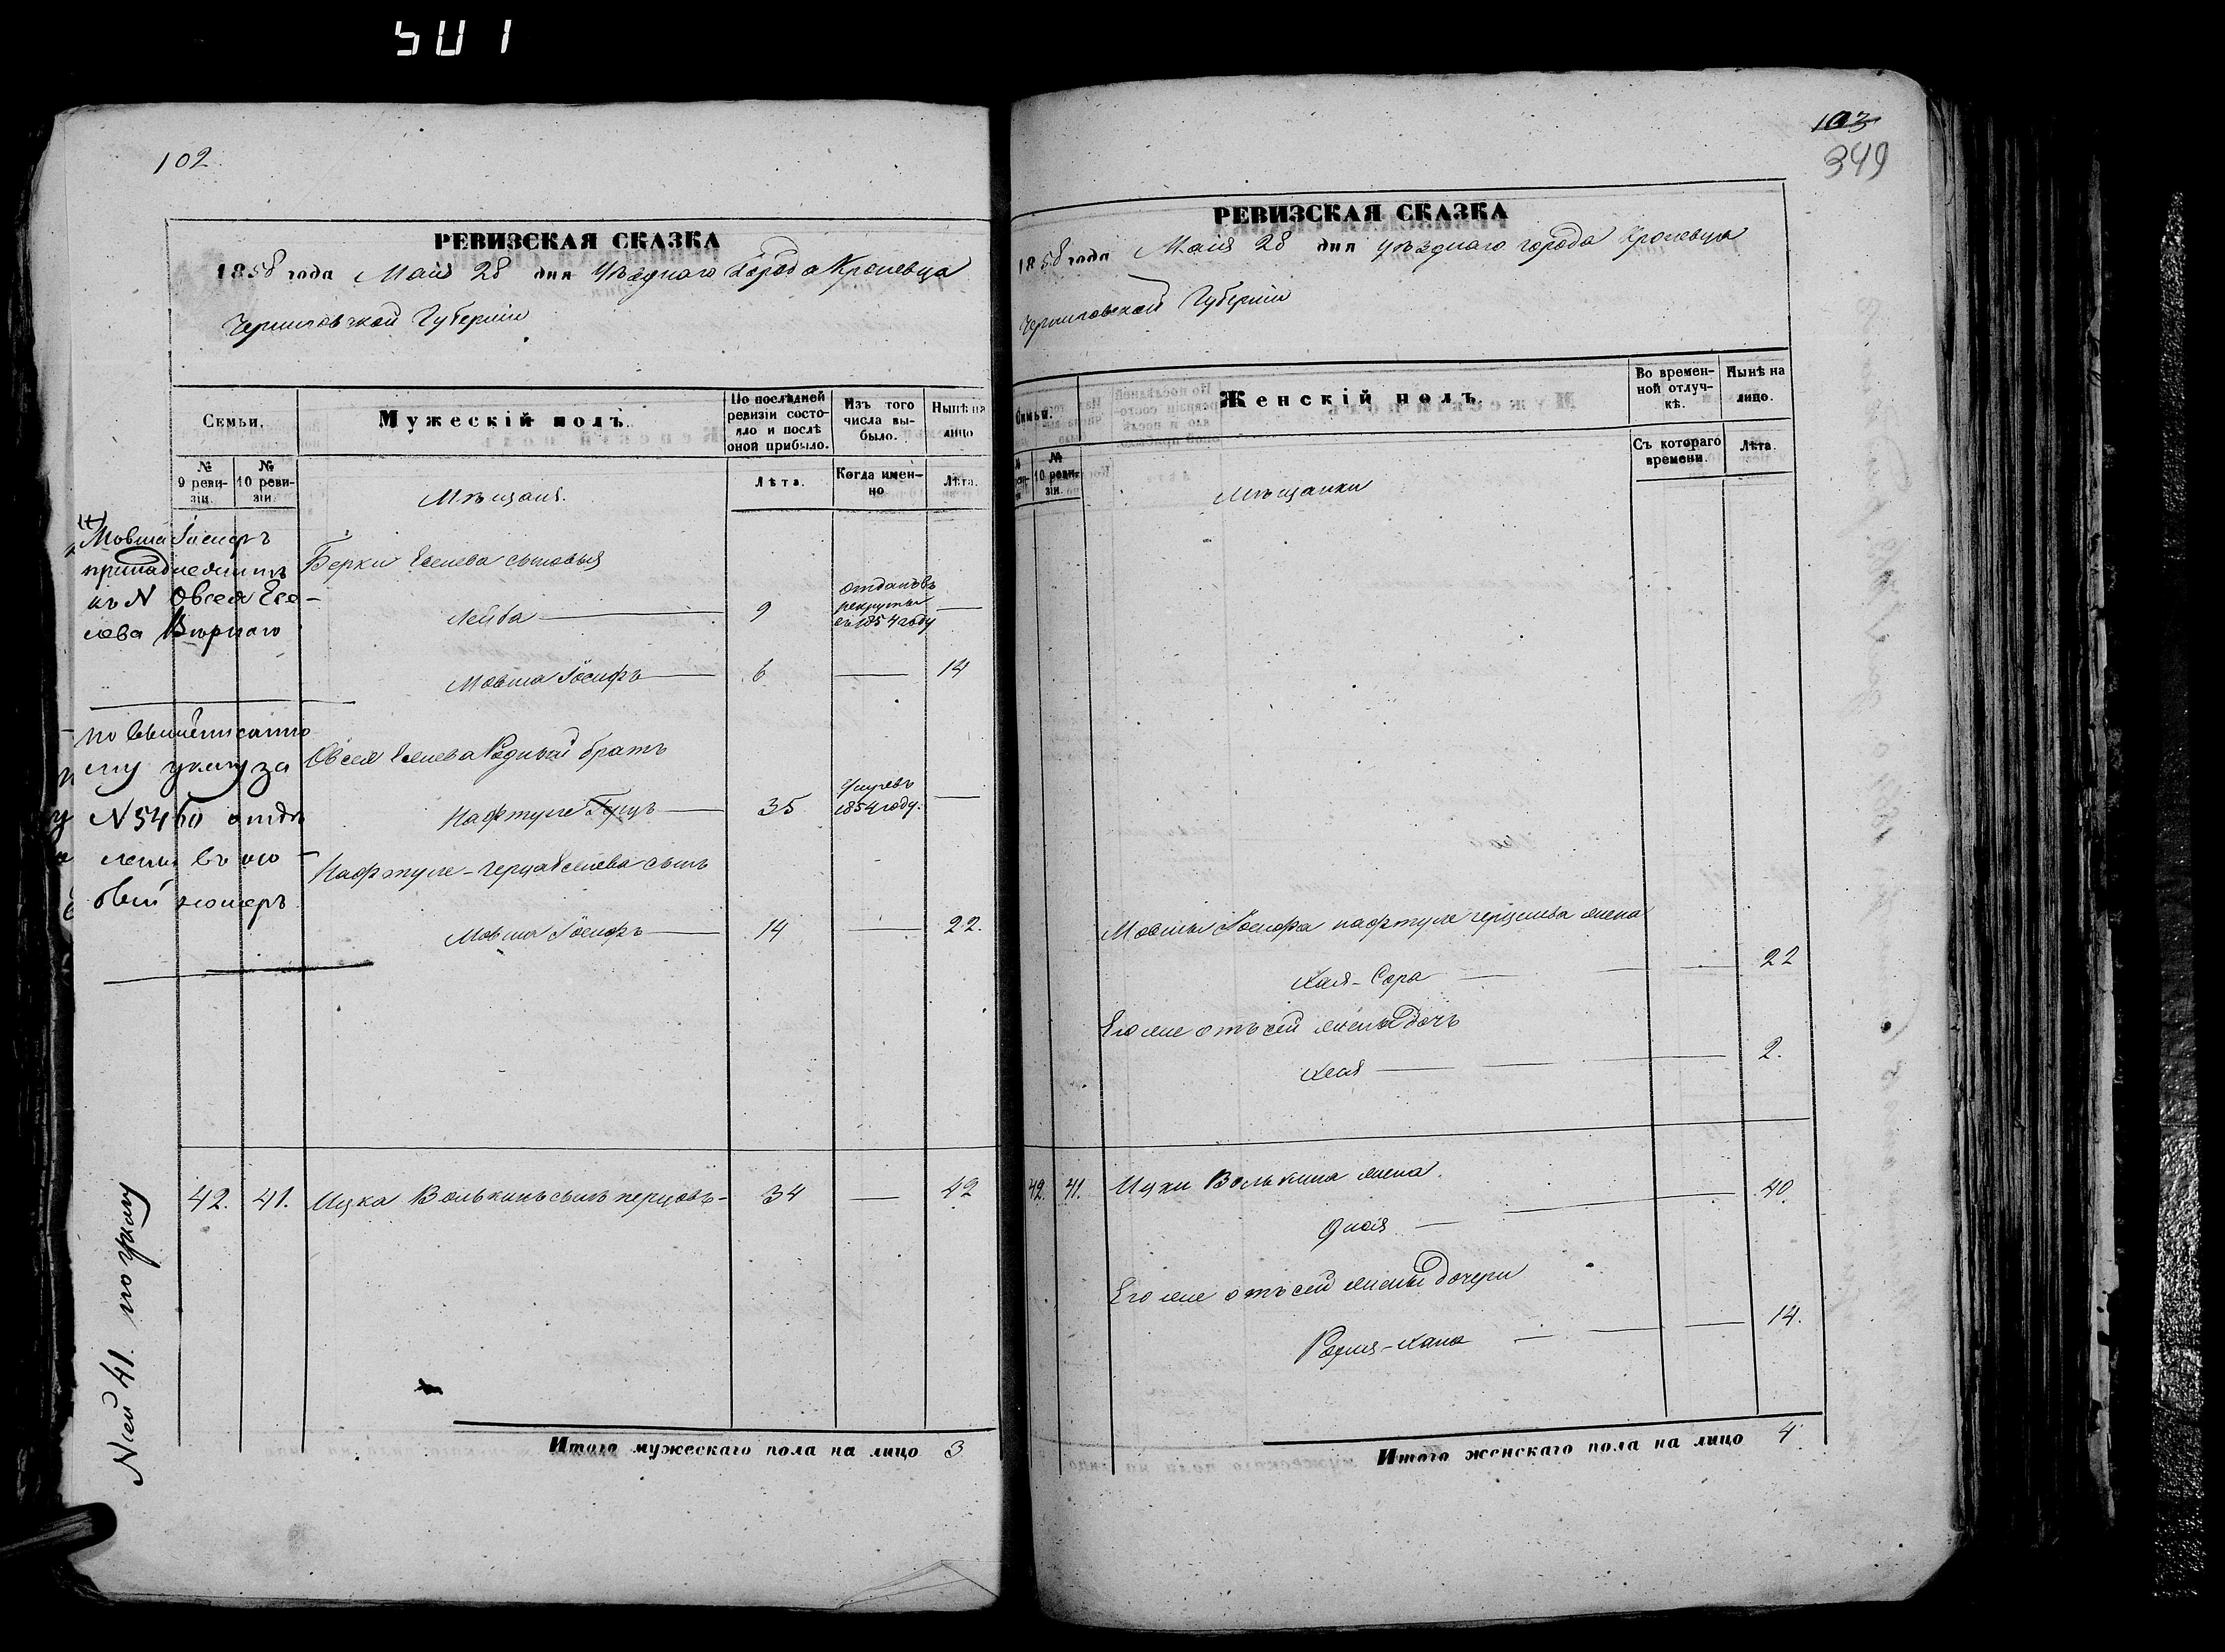 501
102
РЕВИЗСКАЯ СКАЗКА
1858 года Маія 28 дня Уѣзднаго города Кролевца
Черниговской Губерніи
Семьи.
Мужескій полъ.
По послѣдней ревизіи состояло и послѣ оной прибыло.
Изъ того числа выбыло.
Нынѣ на лицо
№ 9 ревизіи.
№ 10 ревизіи.
Лѣта.
Когда именно
Лѣта.
Мѣщаня.
Мовша Іосифъ
принадлежитъ
къ N Овсея Есе-
лева Вѣрнаго
Берки Еселева сыновья
Лейба 9 отданъ въ рекруты въ 1854 году —
Мовша Іосифъ 6 — 14
по вышеписанно
му указу за
N 5460 отдѣ
ленъ въ осо-
бый номеръ
Овсея Еселева Родный братъ
Нафтуле Герцъ 35 Умеръ въ 1854 году. —
Нафтуле-Герца Еселева сынъ
Мовша Іосифъ 14 — 22.
42. 41. Ицка Волькинъ сынъ Перцовъ 34 — 42
Nсей 41. по указу
Итого мужескаго пола на лицо 3
103
349
РЕВИЗСКАЯ СКАЗКА
1858 года Маія 28 дня уѣзднаго города Кролевца
Черниговской Губерніи
Семьи.
Женскій полъ.
Во временной отлучкѣ.
Нынѣ на лицо.
№ 10 ревизіи.
Съ котораго времени.
Лѣта.
Мѣщанки
Мовши Іосифа Нафтуле Герцлева жена
Хая-Сора — 22
Его же отъ сей жены дочь
Хася — 2.
42. 41. Ицки Волькина жена
— 40.
Его же отъ сей жены дочери
14.
Итого женскаго пола на лицо 4